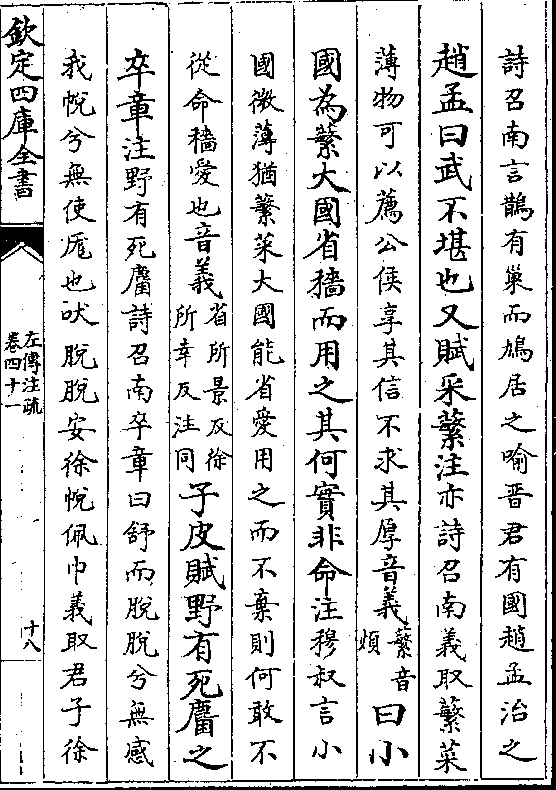 詩召南言鵲有巢而鳩居之喻晉君有國趙孟治之
趙孟曰武不堪也又賦采蘩注亦詩召南義取蘩菜
薄物可以薦公侯享其信不求其厚音義蘩音煩曰小
國為蘩大國省穡而用之其何實非命注穆叔言小
國微薄猶蘩菜大國能省愛用之而不棄則何敢不
從命穡愛也音義省所景反徐所幸反注同子皮賦野有死麕之
卒章注野有死麕詩召南卒章曰舒而脫脫兮無感
我帨兮無使尨也吠脫脫安徐帨佩巾義取君子徐
欽定四庫全書
左傳注疏
卷四十一
十八